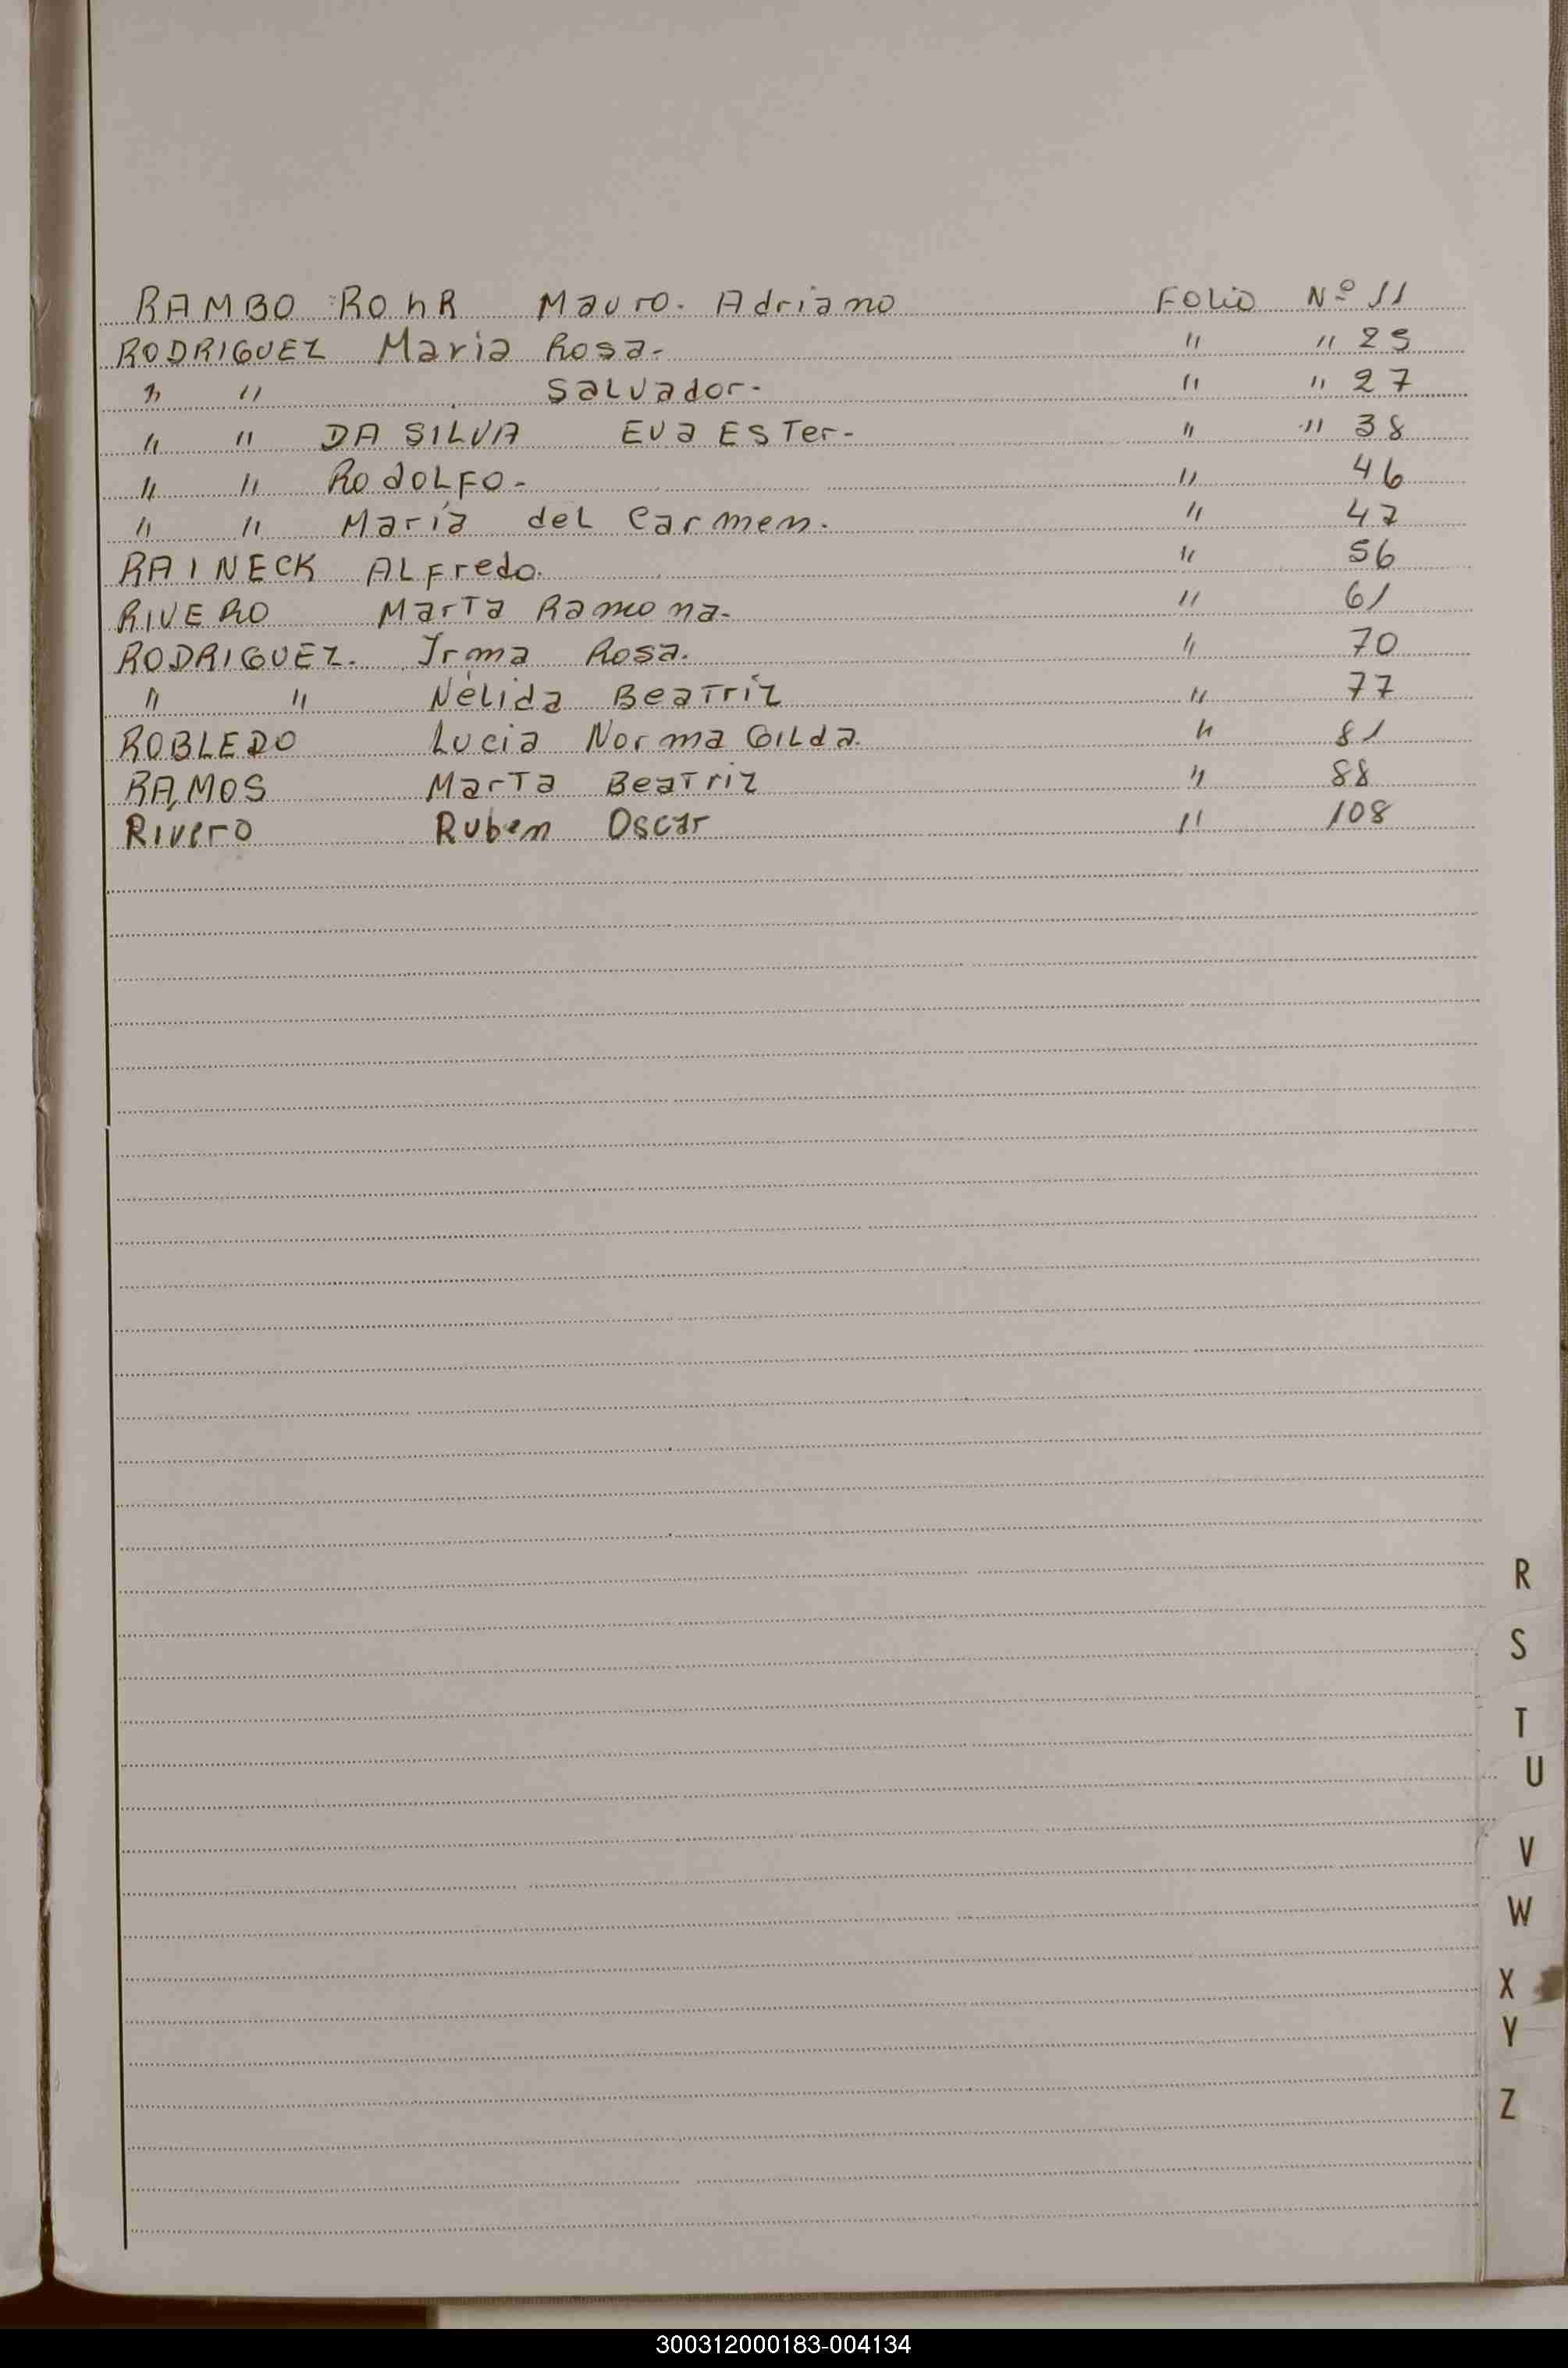 RAMBO ROhR Mauro. Adriano Folio Nº 11
RODRIGUEZ Maria Rosa- " " 25
" " Salvador- " " 27
" " DA SILVA Eva Ester- " " 38
" " Rodolfo- " 46
" " María del Carmen. " 47
RAINECK Alfredo. " 56
RIVERO Marta Ramona- " 61
RODRIGUEZ. Irma Rosa. " 70
" " Nélida Beatríz " 77
ROBLEDO Lucia Norma Gilda. " 81
RAMOS Marta Beatriz " 88
Rivero Ruben Oscar " 108
R
S
T
U
V
W
X
Y
Z
300312000183-004134